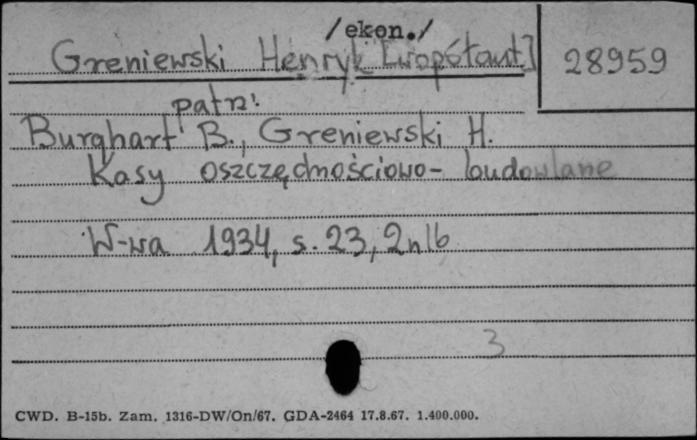 /ekon./
Greniewski Henryk [współaut.]
28959
patrz:
Burghart B., Greniewski H.
Kasy oszczędnościowo-budowlane
W-wa 1934, s. 23, 2nlb
3
CWD. B-15b. Zam. 1316-DW/On/67. GDA-2464 17.8.67. 1.400.000.